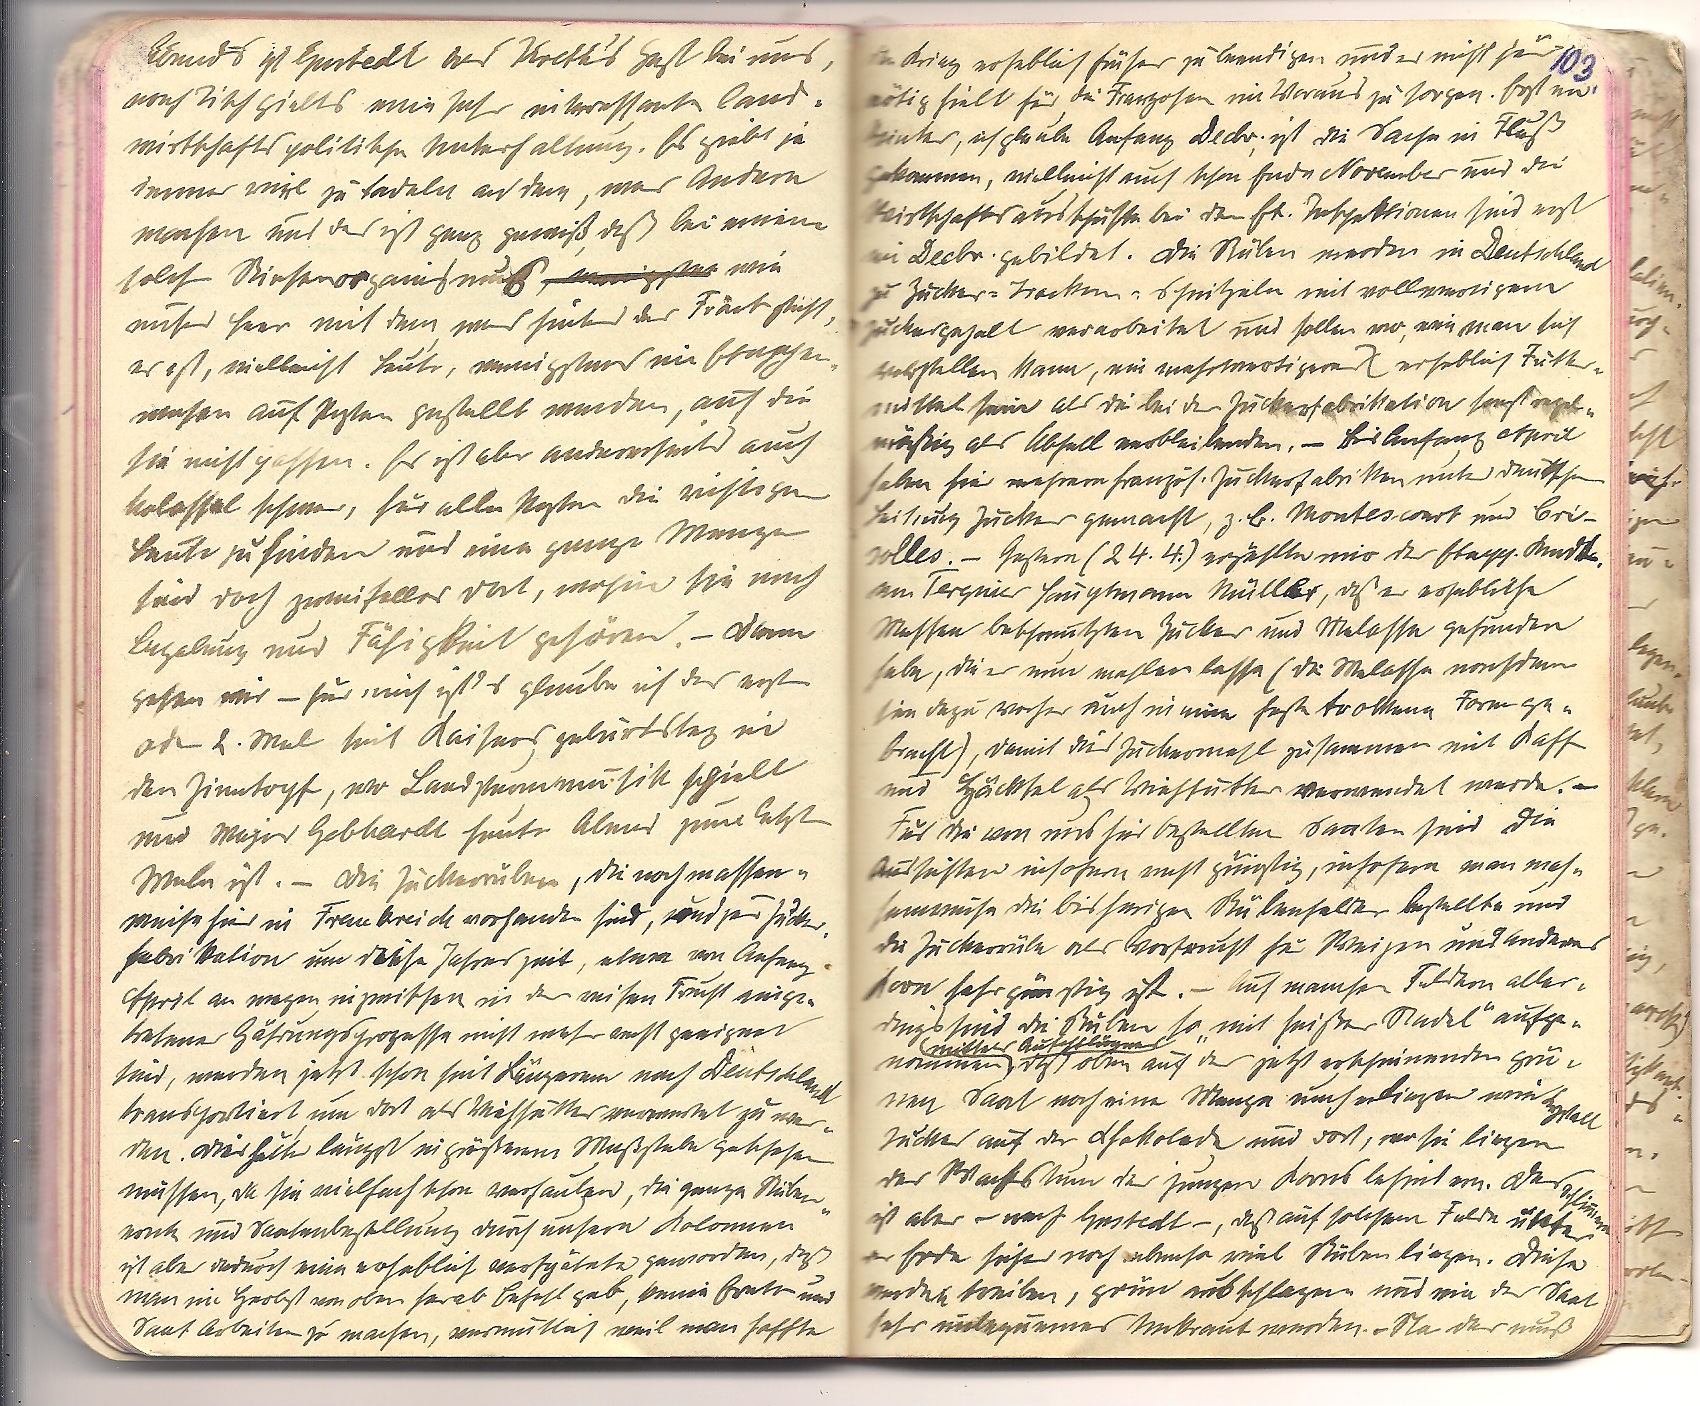 Abends ist Gustedt als Koethe's Gast bei uns,
nach Tisch giebts eine sehr interessante land-
wirtschaftspolitische Unterhaltung. Es giebt ja
immer viel zu tadeln an dem, was Andere
machen und das ist ganz gewiß, daß bei einem
solch Riesenorganismus, wie
unser Heer mit dem, was hinter der Front steht,
es ist, vielleicht Leute, wenigstens im Etappen-
wesen auf Posten gestellt werden, auf die
sie nicht passen. Es ist aber andererseits auch
kolossal schwer, für alle Posten die richtigen
Leute zu finden und eine ganze Menge
sind doch zweifellos dort, wohin sie nach
Begabung und Fähigkeit gehören. – Dann
gehen wir – für mich ist's glaube ich das erste
oder 2. Mal seit Kaisers Geburtstag in
den Zinntopf, wo Landsturmmusik spielt
und Major Gebhardt heute Abend zum letzten
Male ist. – Die Zuckerrüben, die noch massen-
weise hier in Frankreich vorhanden sind, und zur Zucker-
fabrikation um diese Jahreszeit, etwa von Anfang
April an wegen inzwischen in der reifen Frucht einge-
tretener Gährungsprozesse nicht mehr recht geeignet
sind, werden jetzt schon seit Längerem nach Deutschland
transportiert, um dort als Viehfutter verwertet zu wer-
den. Dies hätte längst in größerem Maßstabe geschehen
müssen, da sie vielfach schon verfaulen, die ganze Rüben-
ernte und Saatenbestellung durch unsere Kolonnen
ist aber dadurch eine erheblich verspätete geworden, daß
man im Herbst von oben herab Befehl gab, keine Ernte und
Saat Arbeiten zu machen, vermutlich weil man hoffte
103
den Krieg erheblich früher zu beendigen und es nicht für
nötig hielt für die Franzosen im Voraus zu sorgen. Erst im
Winter, ich glaube Anfang Decbr, ist die Sache in Fluß
gekommen, vielleicht auch schon Ende November und die
Wirtschaftsausschüsse bei den Et. Inspektionen sind erst
im Decbr. gebildet. Die Rüben werden in Deutschland
zu Zucker-Trocken-Schnitzeln mit vollwertigem
Zuckergehalt verarbeitet und sollen so, wie man sich
vorstellen kann, ein mehrwertigeres erheblich Futter-
mittel sein als die bei der Zuckerfabrikation sonst regel-
mäßig als Abfall verbleibenden. – Bis Anfang April
haben hier mehrere französ. Zuckerfabriken unter deutscher
Leitung Zucker gemacht, z.B. Montescourt und Eri-
solles. – Gestern (24.4.) erzählte mir der Etapp. Kmdt.
von Tergnier Hauptmann Müller, daß er erhebliche
Massen beschmutzten Zucker und Melasse gefunden
habe, die er nun mahlen lasse (die Melasse nachdem
sie dazu vorher auch in eine feste trockene Form ge-
bracht), damit dies Zuckermehl zusammen mit Kaff
und Häcksel als Viehfutter verwendet werde. –
Für die von uns hier bestellten Saaten sind die
Aussichten insofern recht günstig, insofern man
die bisherigen Rübenfelder bestellte und
die Zuckerrübe als Vorfrucht für Weizen und anderes
Korn sehr günstig ist. – Auf manchen Feldern aller-
dings sind die Rüben so „mit heißer Nadel" aufge-
nommen, daß oben auf der jetzt erscheinenden grü-
nen Saat noch eine Menge umherliegen wie Krystall
Zucker auf der Chokolade und dort, wo sie liegen
das Wachstum des jungen Korns behindern. Das Schlimmere
ist aber – nach Gustedt –, daß auf solchem Felde unter
der Erde sicher noch ebenso viel Rüben liegen. Diese
werden treiben, grün ausschlagen und in der Saat
sehr unbequemes Unkraut werden. – Na das muß